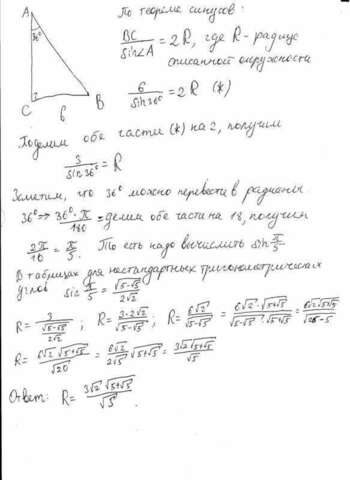 A
36°
C
6
B
По теореме синусов:
BC/sin∠A = 2R, где R - радиус
описанной окружности
6/sin36° = 2R (*)
Поделим обе части (*) на 2, получим
3/sin36° = R
Заметим, что 36° можно перевести в радианы
36° => 36°·π/180 = делим обе части на 18, получим
2π/10 = π/5. То есть надо вычислить sin π/5
В таблицах для нестандартных тригонометрических
углов sin π/5 = √(5-√5)/(2√2)
R = 3/(√(5-√5)/(2√2)) ; R = 3·2√2/√(5-√5) ; R = 6√2/√(5-√5) = 6√2·√(5+√5)/(√(5-√5)·√(5+√5)) = 6√2√(5+√5)/√(25-5)
R = 6√2√(5+√5)/√20 = 6√2/(2√5)·√(5+√5) = 3√2√(5+√5)/√5
Ответ: R = 3√2·√(5+√5)/√5.